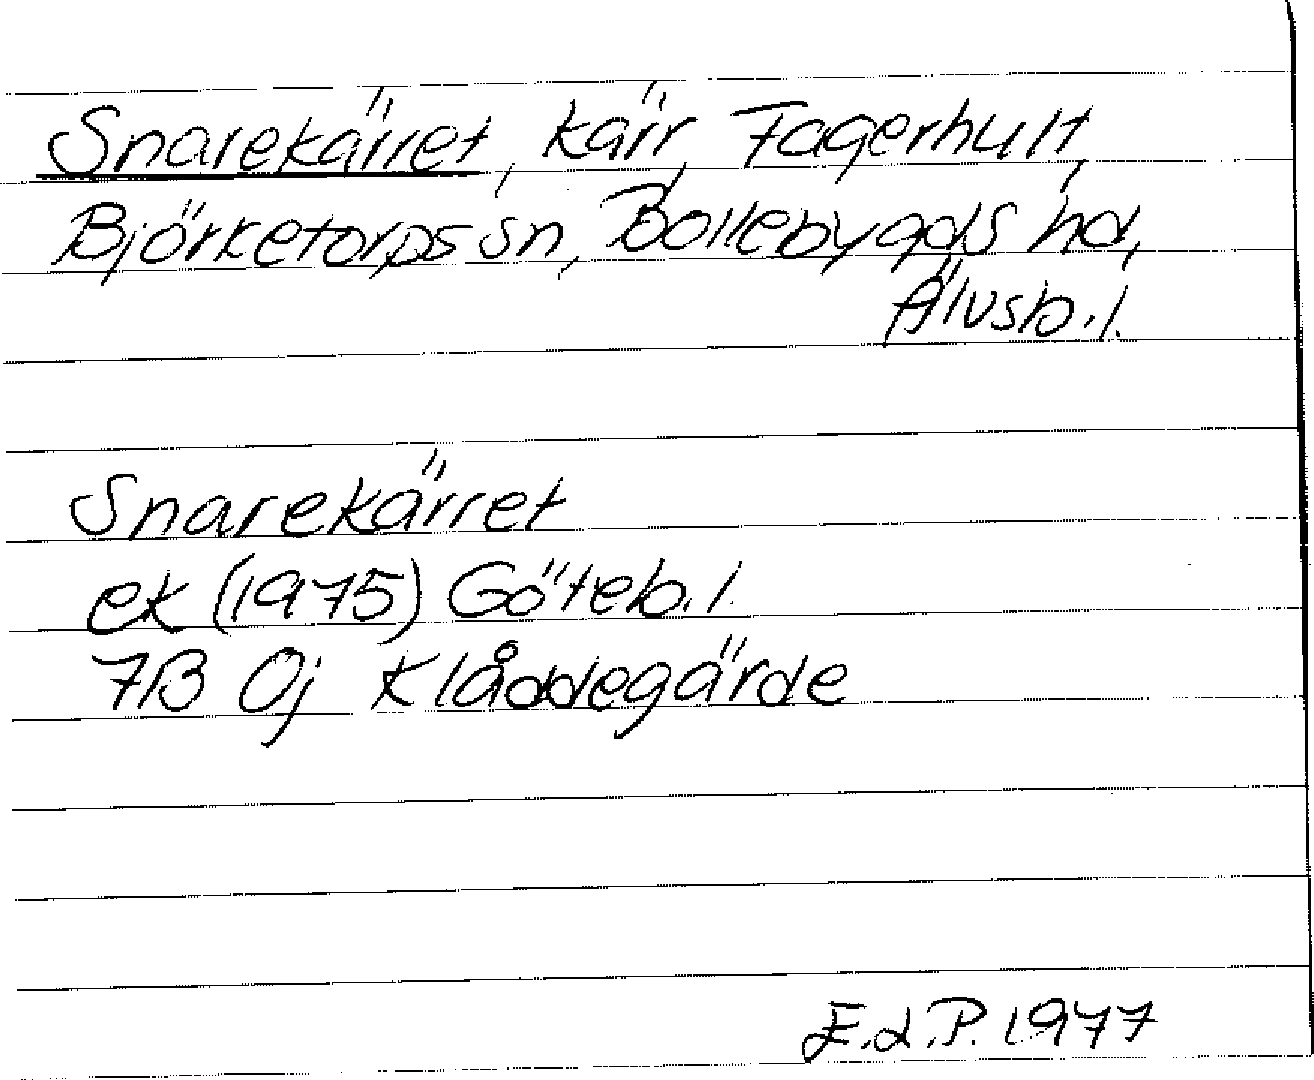 Snarekärret, kärr, Fagerhult,
Björketorps sn, Bollebygds hd,
Älvsb.l.
Snarekärret
ek (1975) Göteb.l.
7B 0j Klåddegärde
E.d.P. 1977